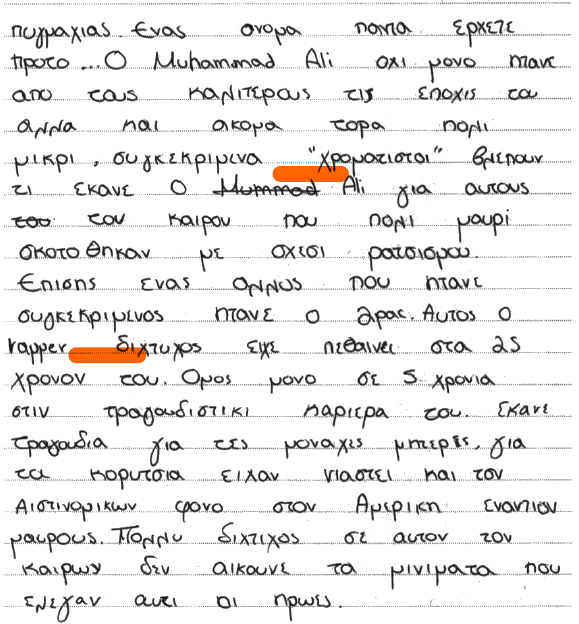 πυγμαχιας. Ενας ονομα παντα ερχετε
πρoτο... Ο Muhammad Ali οχι μονο ητανε
απο τους καλιτερους τις εποχις του
αλλα και ακομα τορα πολι
μικρι, συγκεκριμενα "χροματιστοι" βλεπουν
τι εκανε Ο Muhmmad Ali για αυτους
του τον καιρον που πολι μαυρι
σκοτοθηκαν με σχεσι ρατσισμου.
Επισης ενας αλλος που ητανε
συγκεκριμενος ητανε ο 2pac. Αυτος ο
rapper διχτυχος ειχε πεθαινει στα 25
χρονον του. Ομος μονο σε 5 χρονια
στιν τραγουδιστικι καριερα του. εκανε
τραγουδια για τες μοναχες μητερες, για
τα κορυτσια ειχαν νιαστει και τον
Αιστινομικων φονο στον Αμερικη εναντιον
μαυρους. Πολλυ διχτιχος σε αυτον τον
καιρων δεν αικουνε τα μινιματα που
ελεγαν αυτι οι ηρωες.